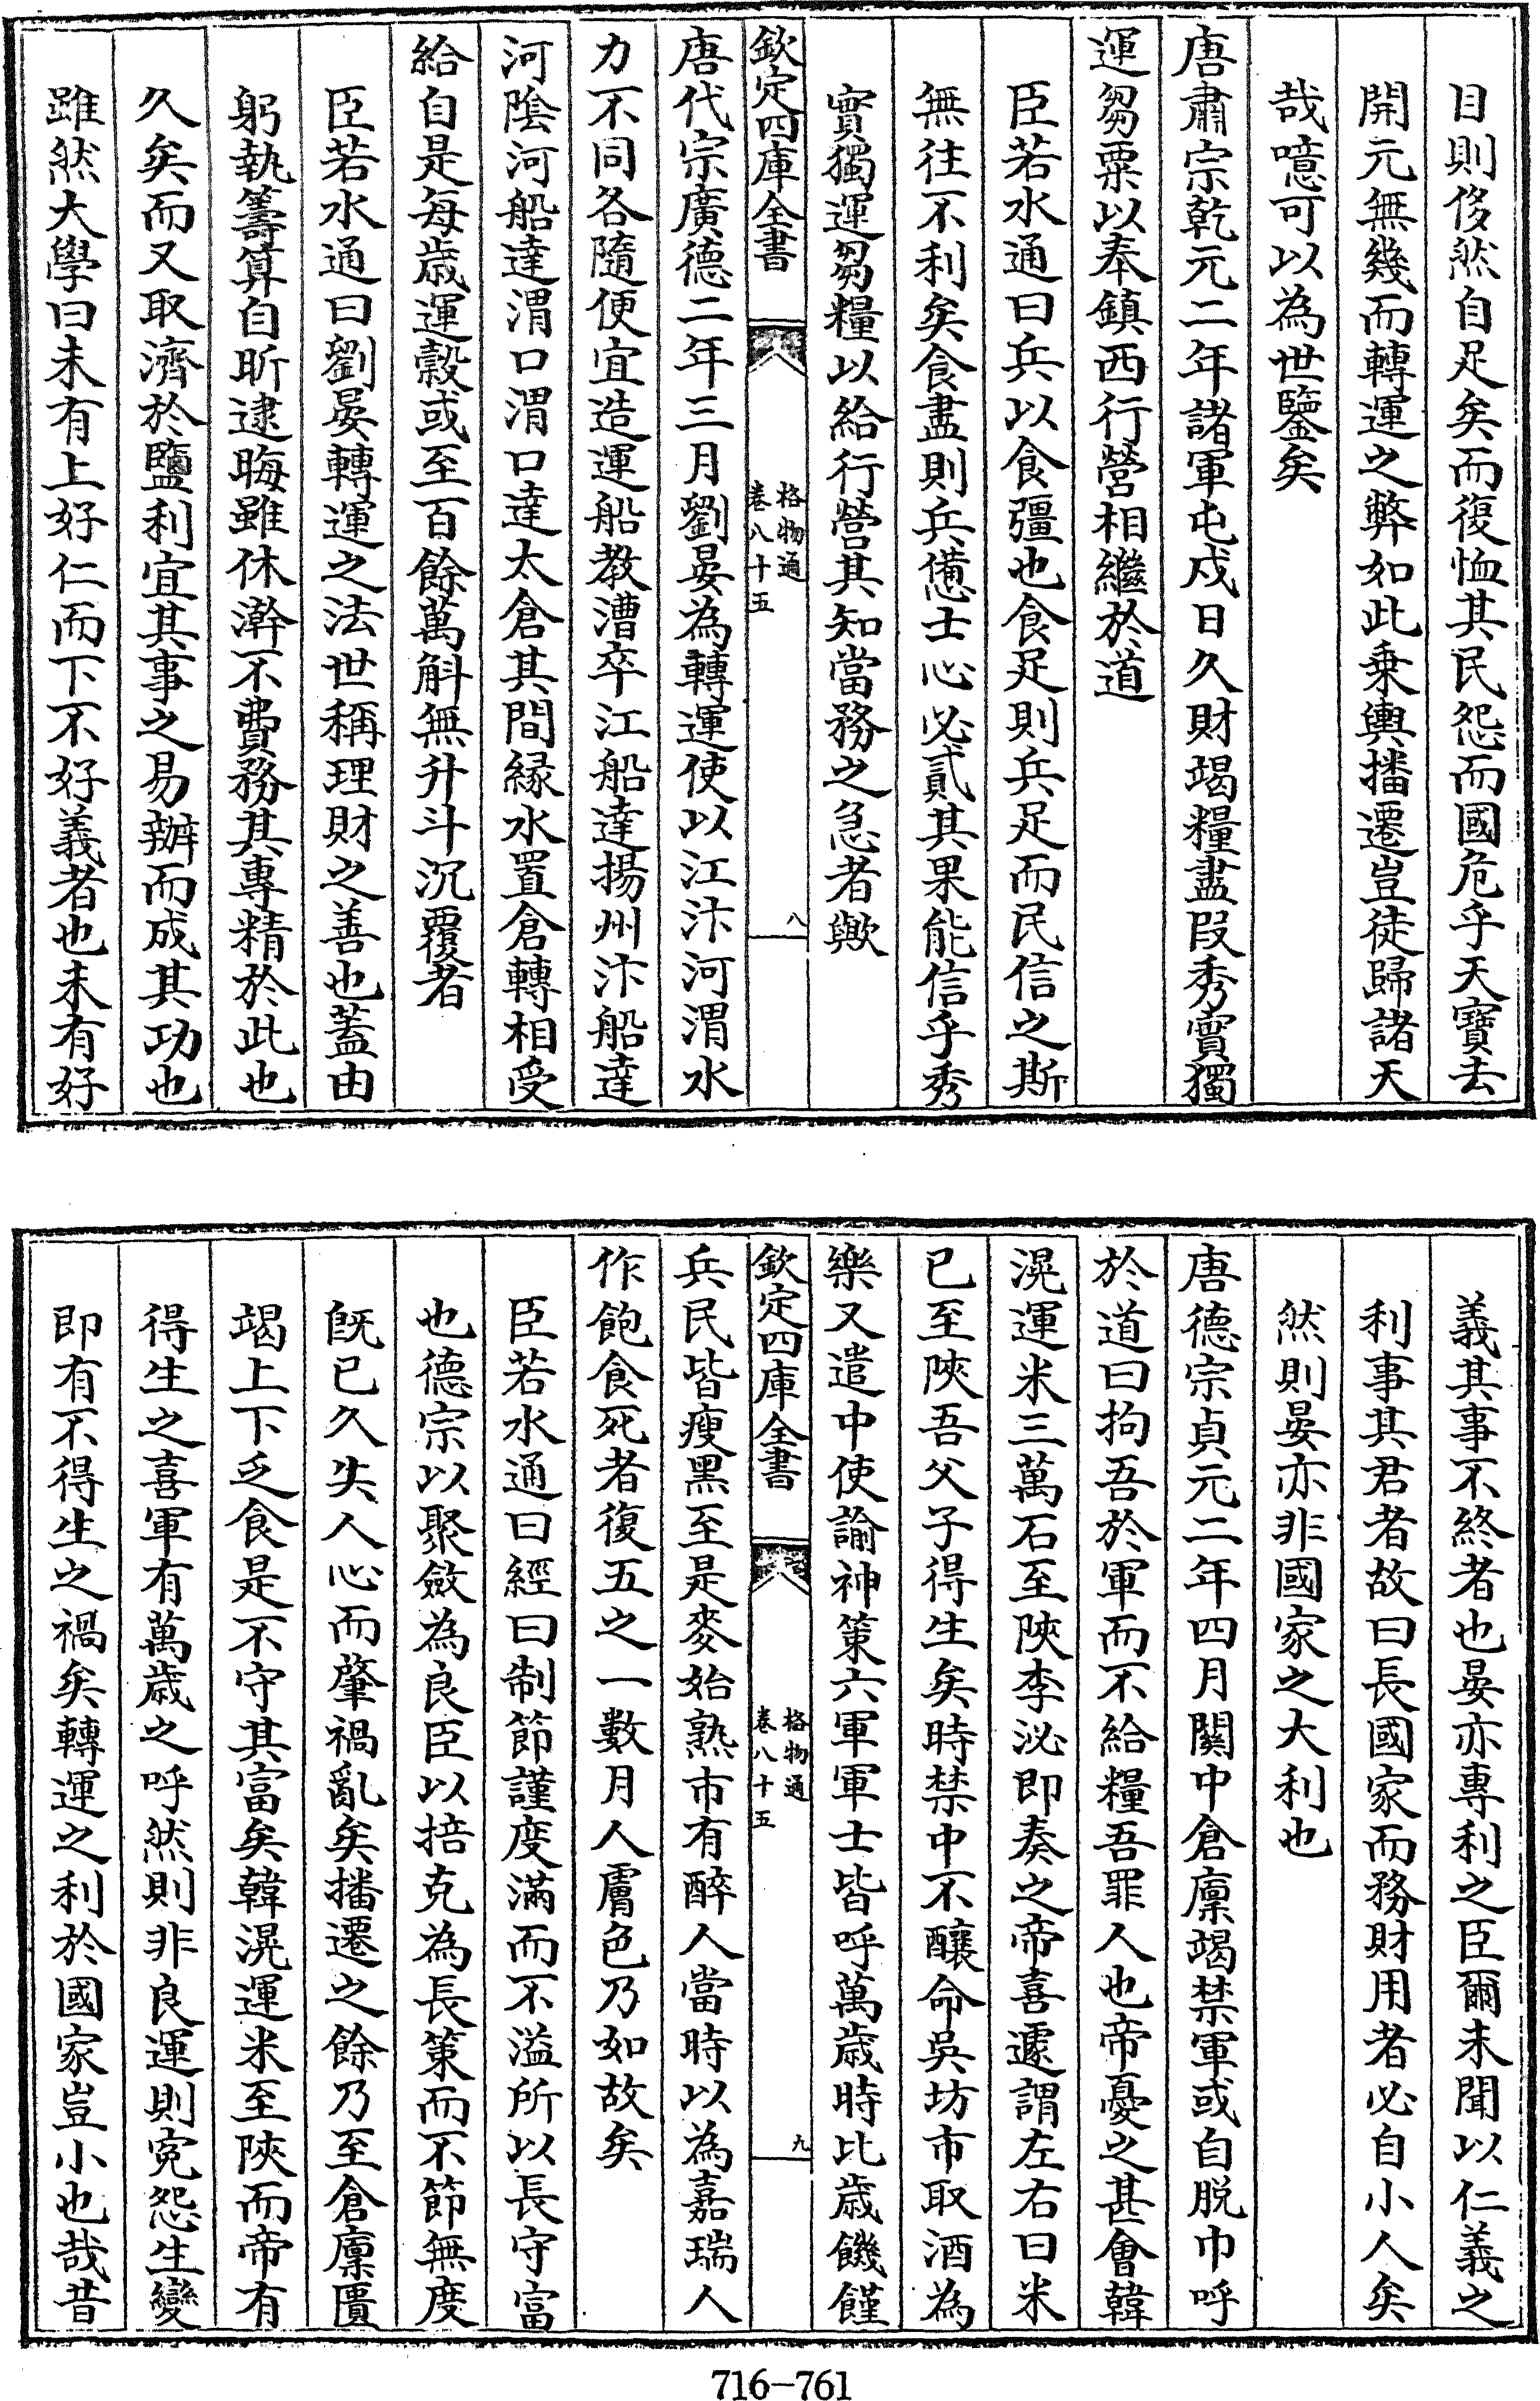 目則侈然自足矣而復恤其民怨而國危乎天寶去
開元無幾而轉運之弊如此乗輿播遷豈徒歸諸天
哉噫可以為世鑒矣
唐肅宗乾元二年諸軍屯戍日久財竭糧盡段秀實獨
運芻粟以奉鎮西行營相繼於道
臣若水通曰兵以食彊也食足則兵足而民信之斯
無往不利矣食盡則兵憊士心必貳其果能信乎秀
實獨運芻糧以給行營其知當務之急者歟
欽定四庫全書
格物通
卷八十五
八
唐代宗廣德二年三月劉晏為轉運使以江汴河渭水
力不同各隨便宜造運船教漕卒江船達揚州汴船達
河陰河船達渭口渭口達太倉其間縁水置倉轉相受
給自是每歳運穀或至百餘萬斛無升斗沉覆者
臣若水通曰劉晏轉運之法世稱理財之善也蓋由
躬執籌算自昕逮晦雖休澣不費務其專精於此也
久矣而又取濟於鹽利宜其事之易辦而成其功也
雖然大學曰未有上好仁而下不好義者也未有好
義其事不終者也晏亦專利之臣爾未聞以仁義之
利事其君者故曰長國家而務財用者必自小人矣
然則晏亦非國家之大利也
唐德宗貞元二年四月關中倉廩竭禁軍或自脱巾呼
於道曰拘吾於軍而不給糧吾罪人也帝憂之甚會韓
滉運米三萬石至陜李泌即奏之帝喜遽謂左右曰米
已至陜吾父子得生矣時禁中不釀命吳坊市取酒為
樂又遣中使諭神策六軍軍士皆呼萬歳時比歳饑饉
欽定四庫全書
格物通
卷八十五
九
兵民皆瘦黑至是麥始熟市有醉人當時以為嘉瑞人
作飽食死者復五之一數月人膚色乃如故矣
臣若水通曰經曰制節謹度滿而不溢所以長守富
也德宗以聚斂為良臣以掊克為長策而不節無度
旣已久失人心而肇禍亂矣播遷之餘乃至倉廩匱
竭上下乏食是不守其富矣韓滉運米至陜而帝有
得生之喜軍有萬歳之呼然則非良運則寃怨生變
即有不得生之禍矣轉運之利於國家豈小也哉昔
716-761